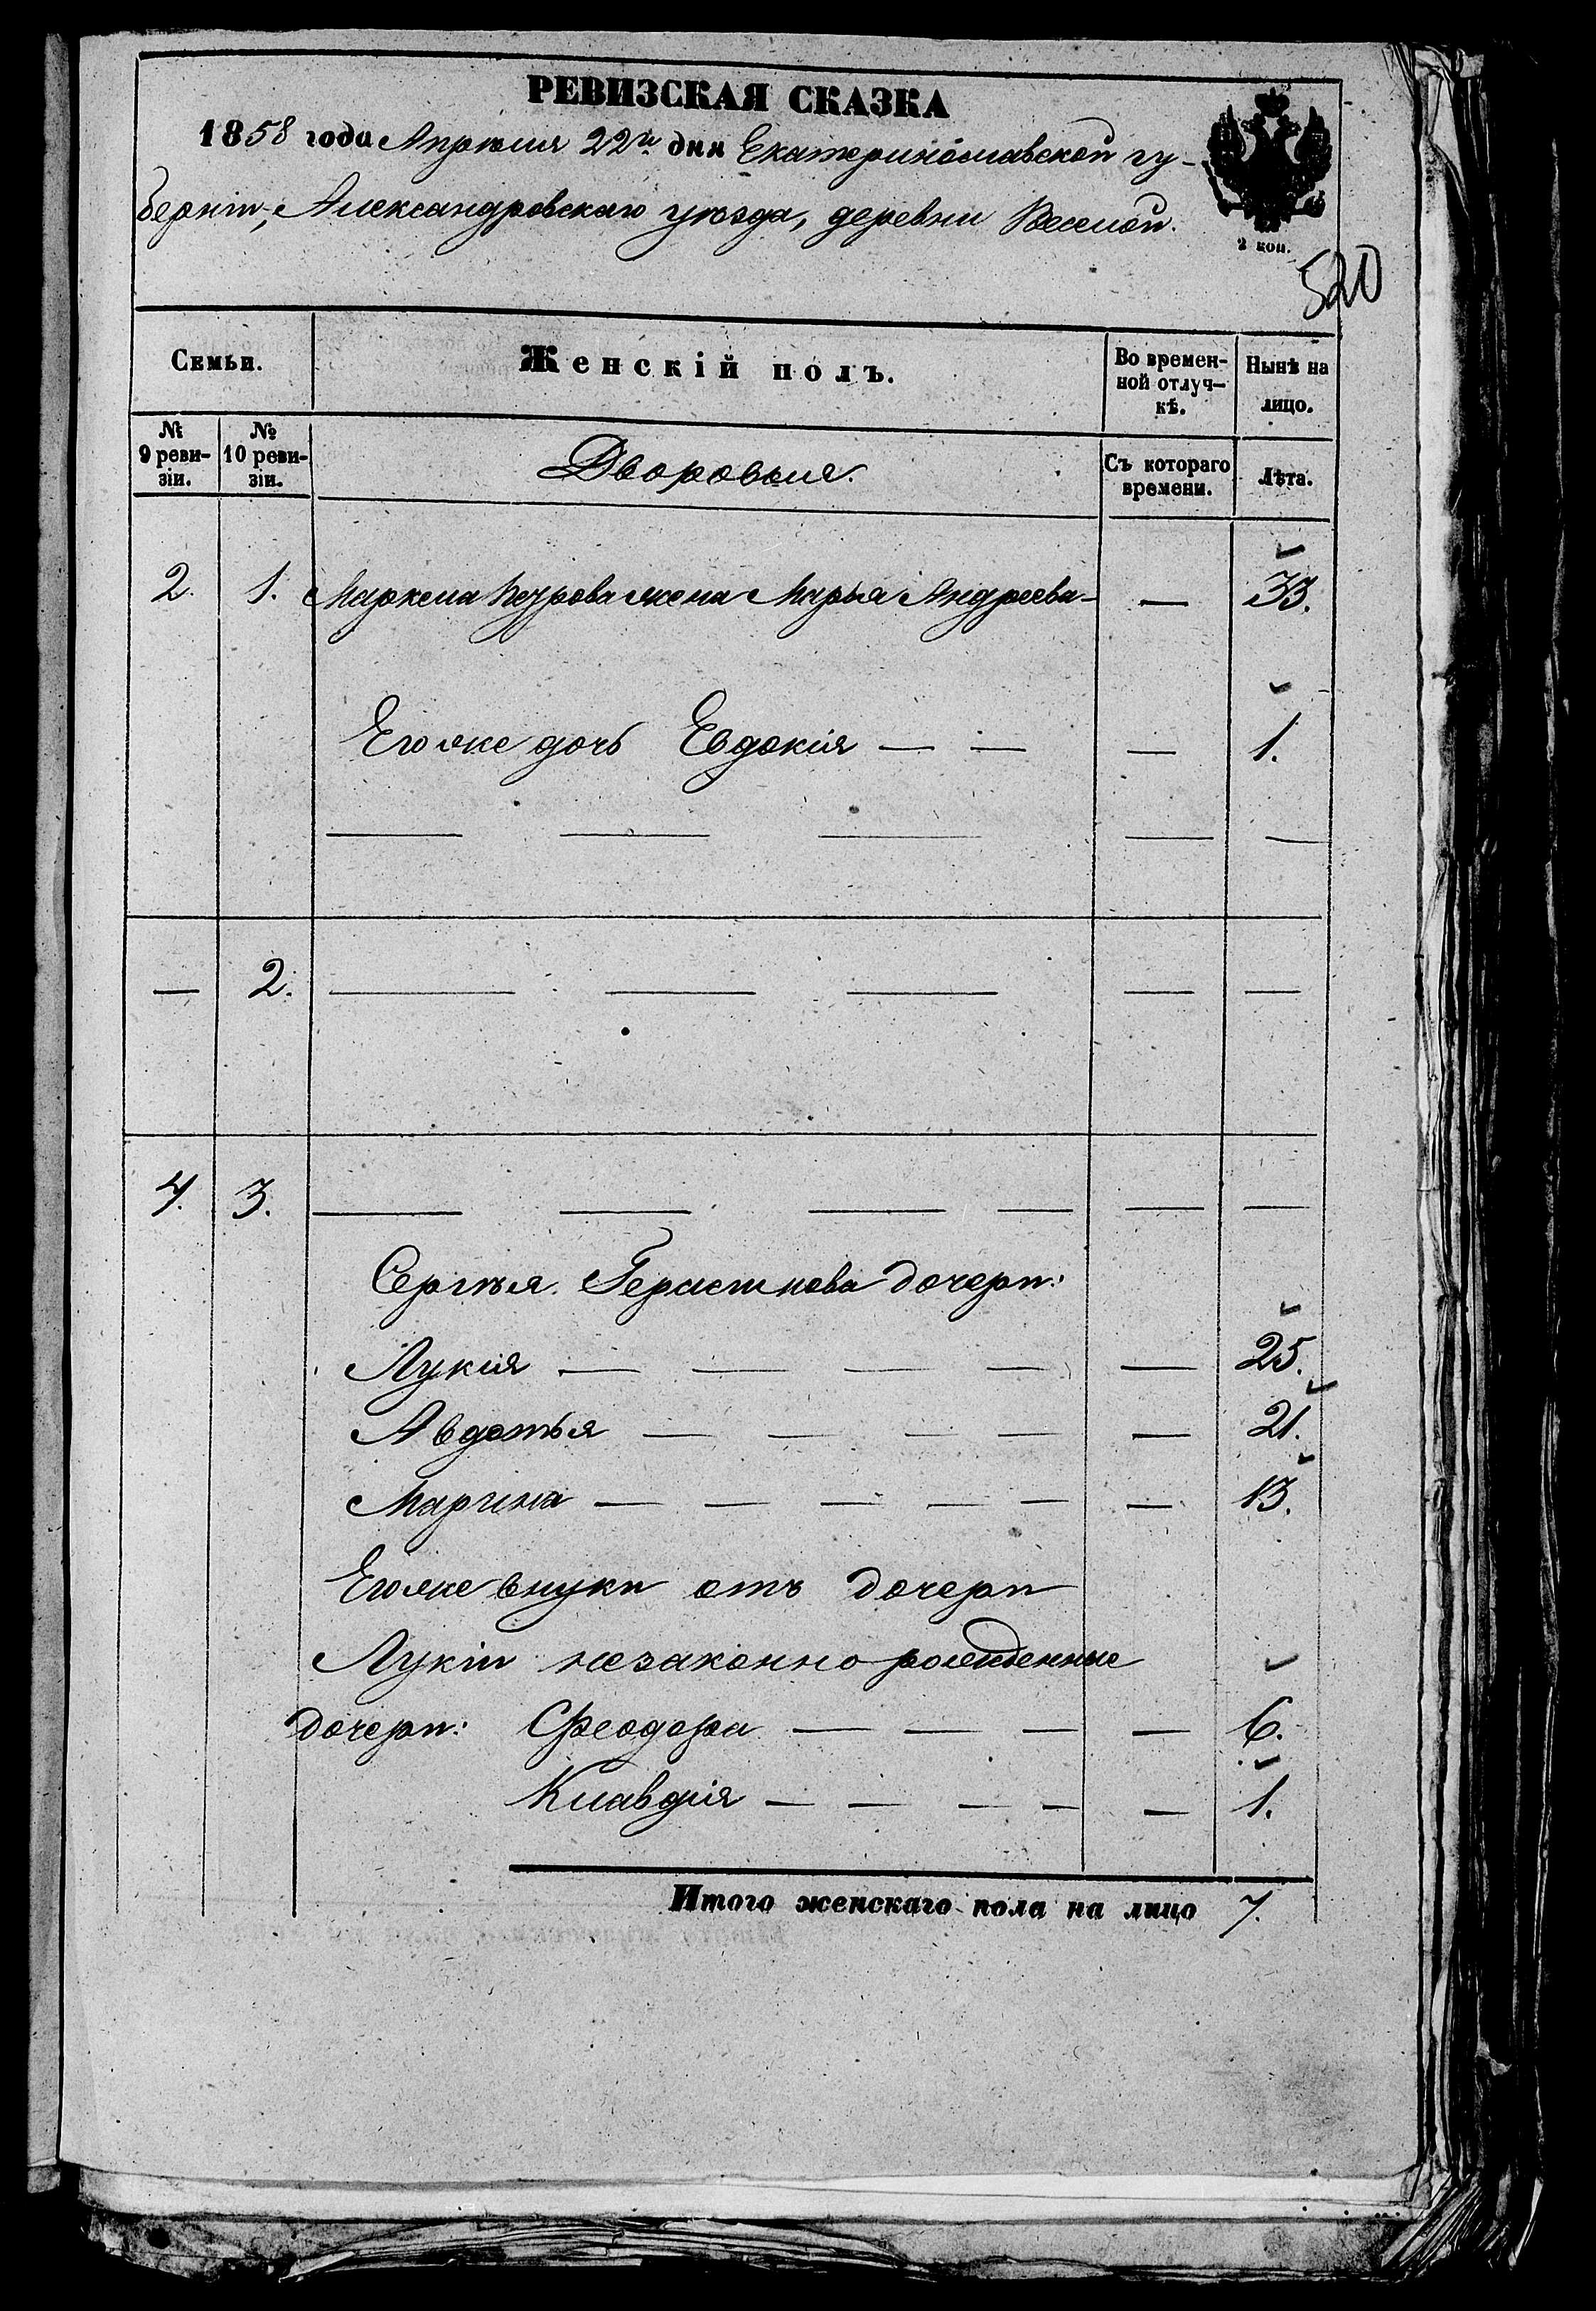 РЕВИЗСКАЯ СКАЗКА
1858 года Апрѣля 22го дня Екатеринославской гу-
берніи, Александровскаго уѣзда, деревни Веселой.
2 коп.
520
Семьи.
Женскій полъ.
Во времен-
ной отлуч-
кѣ.
Нынѣ на
лицо.
№
9 реви-
зіи.
№
10 реви-
зіи.
Дворовые.
Съ котораго
времени.
Лѣта.
2. 1. Маркела Петрова жена Марья Андреева — — 33.
Его же дочь Евдокія — — — 1.
— 2. — — — — —
4. 3. — — — — — —
Сергѣя Герасимова дочери:
Лукія — — — — — 25.
Авдотья — — — — — 21.
Марина — — — — — — 13.
Его же внуки отъ дочери
Лукіи незаконно рожденные
дочери: Феодора — — — — 6.
Клавдія — — — — — 1.
Итого женскаго пола на лицо 7.